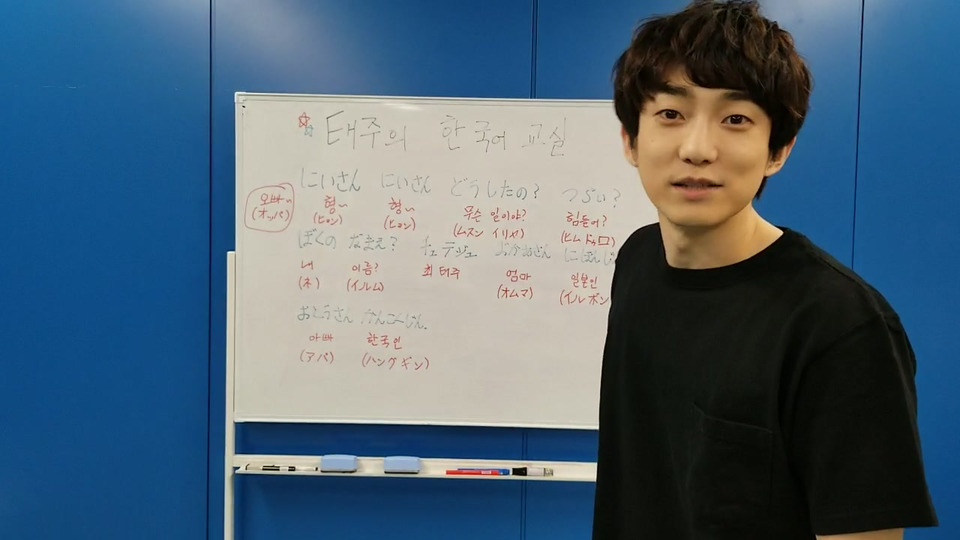 태주의 한국어 교실
にいさん にいさん どうしたの? つらい?
오빠~ 형~ 형~ 무슨 일이야? 힘들어?
(オッパ) (ヒョン) (ヒョン) (ムスン イリヤ) (ヒム ドゥロ)
ぼくの なまえ? チェ テジュ おかあさん にほんじ
내 이름? 최태주 엄마 일본인
(ネ) (イルム) (オムマ) (イルボン
おとうさん かんこくじん
아빠 한국인
(アパ) (ハングギン)